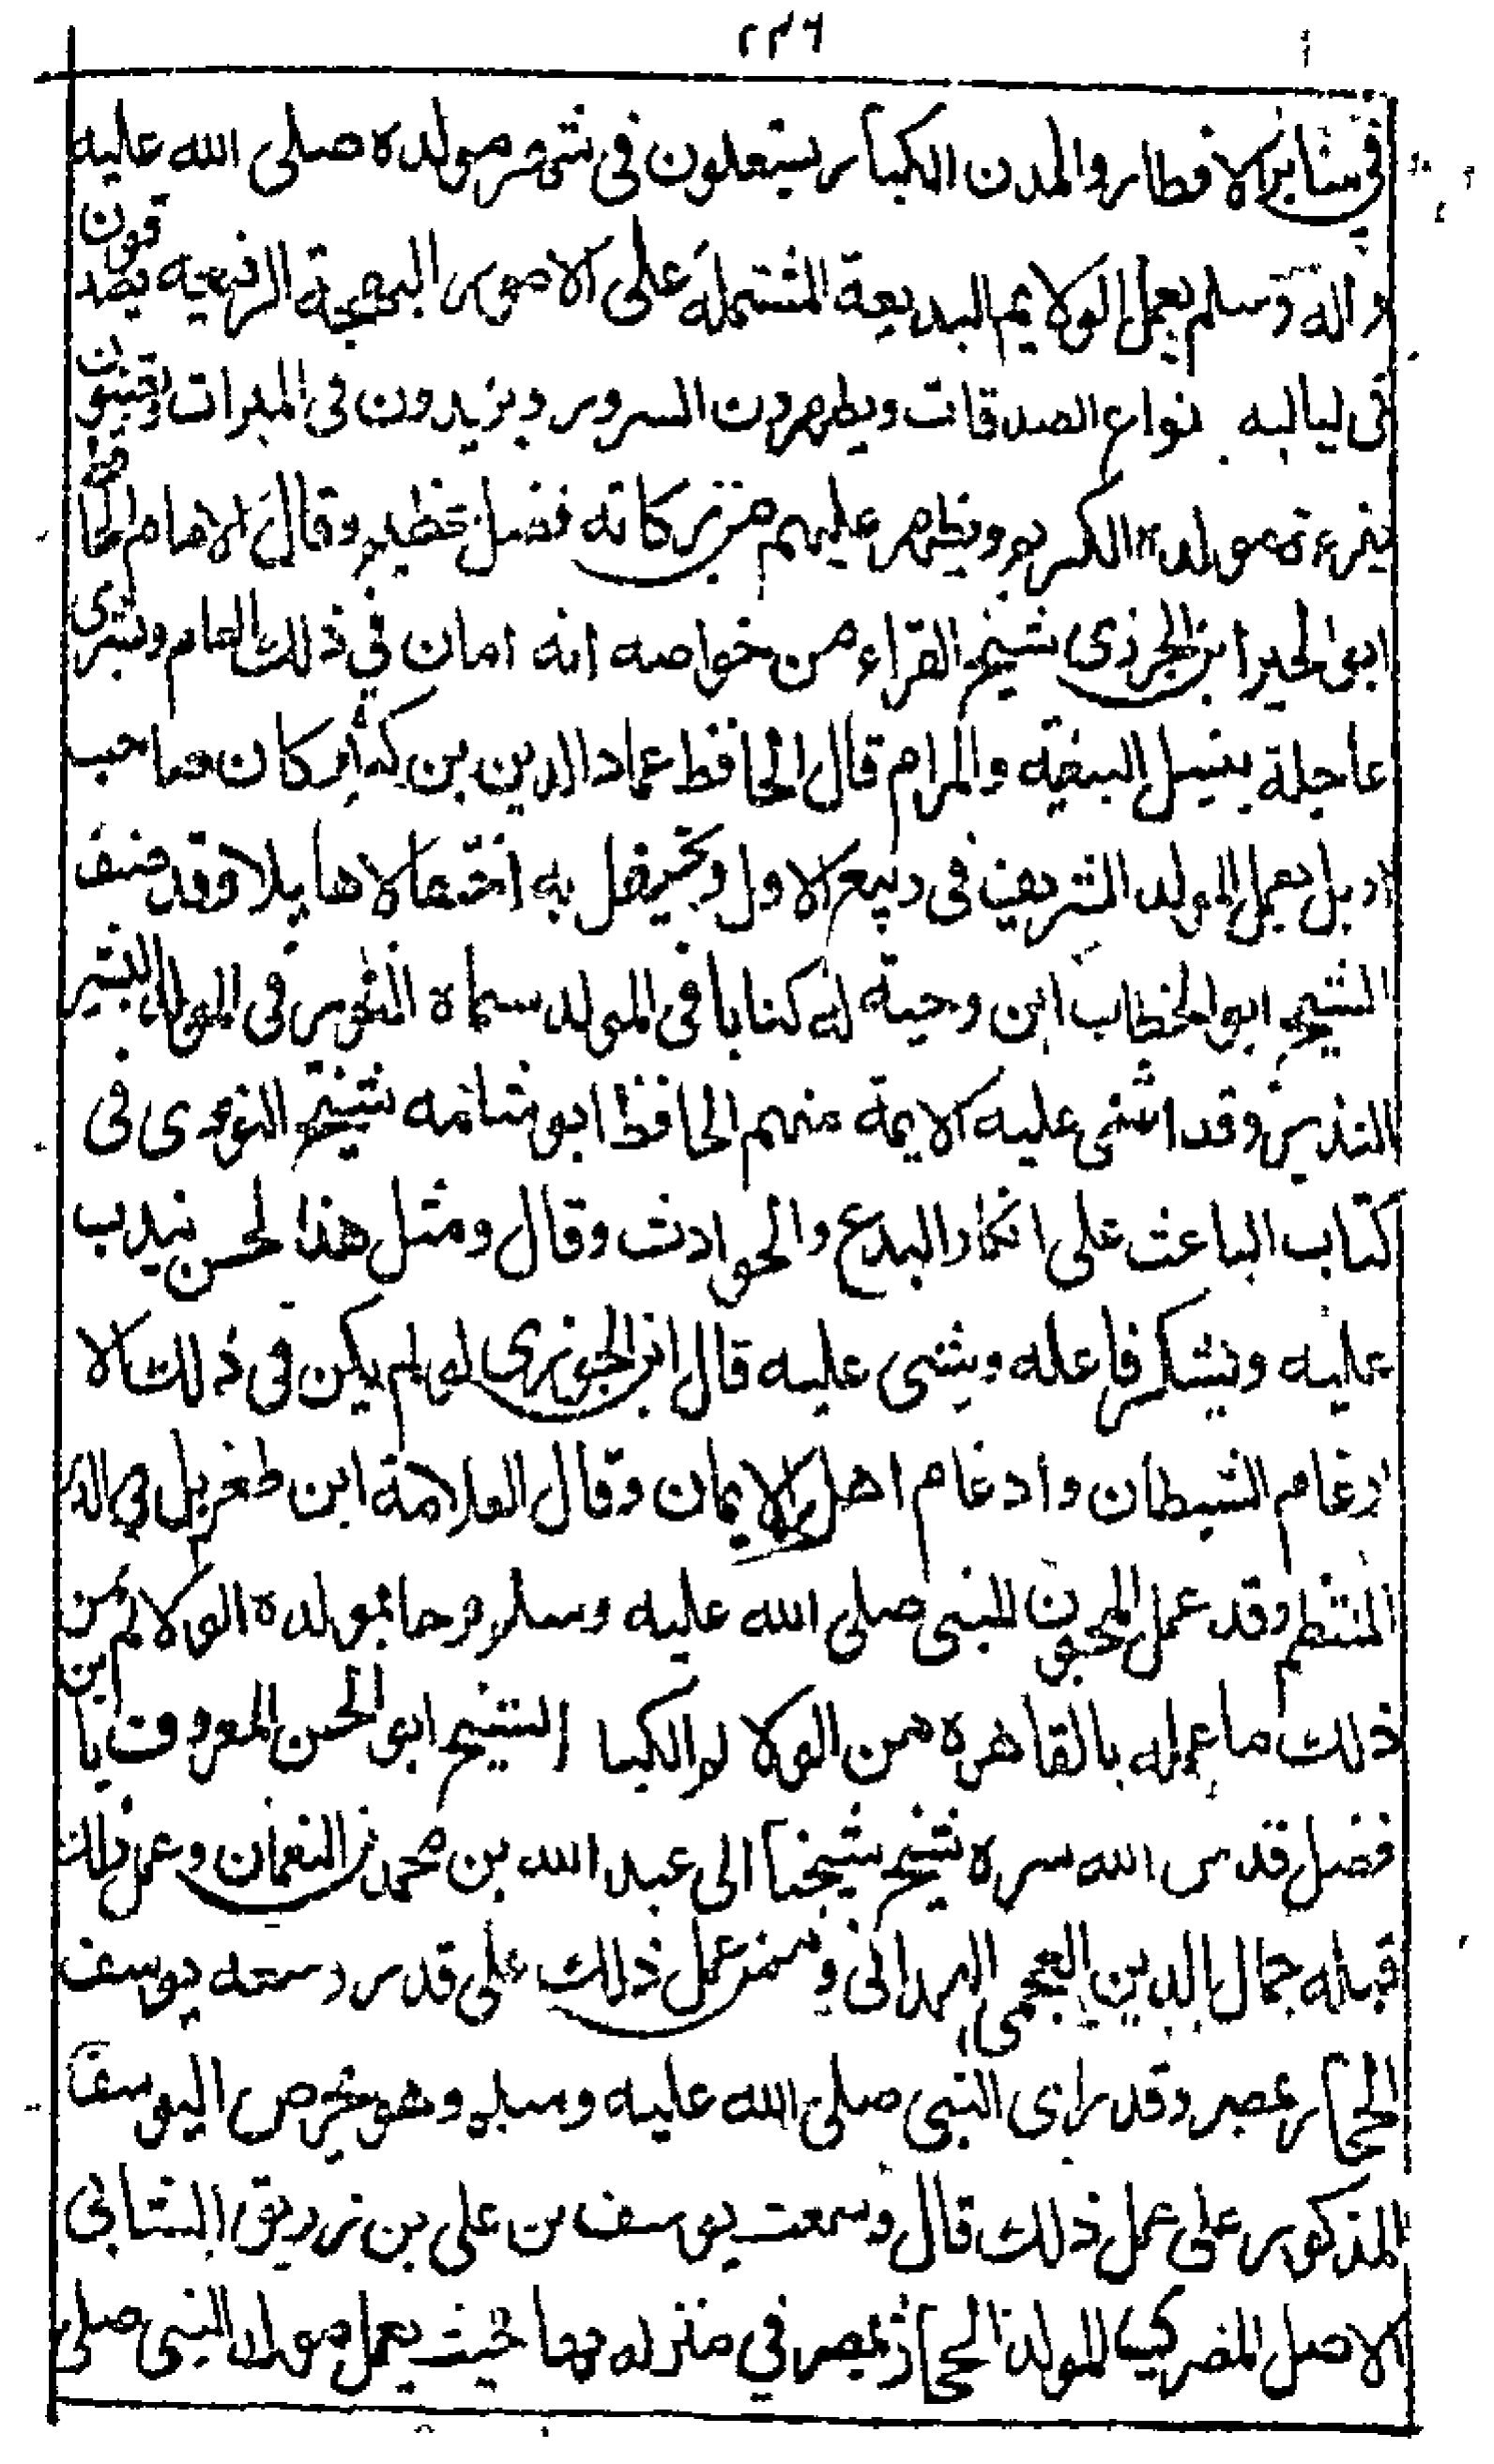 ٢٣٦
في سائر الاقطار والمدن الكبار يستعلون في شهر مولده صلى الله عليه
واله وسلم بعمل الولايم البديعة المشتملة على الامور البهجة الرفيعه يصدقون
في لياليه نواع الصدقات ويظهرون السرور ويزيدون في المبرات ويعتنون
بقرءة مولده الكريم ويظهر عليهم من بركاته فضل عظيم وقال الامام الحافظ
ابو الخير ابن الجزري شيخ القراء من خواصه انه امان في ذلك العام وبشرى
عاجلة بنيل البغية والمرام قال الحافظ عماد الدين بن كثير كان صاحب
اربل يعمل المولد الشريف في ربيع الاول ويحتفل به احتفالا هايلا وقد صنف
الشيخ ابو الخطاب ابن وحية له كتابا في المولد سماه التنوير في المولد البشير
النذير وقد اثنى عليه الايمة منهم الحافظ ابو شامه شيخ النووي في
كتاب الباعث على انكار البدع والحوادث وقال ومثل هذا لحسن يندب
عليه ويشكر فاعله ويثنى عليه قال ابن الجوزي لو لم يكن في ذلك الا
ارغام الشيطان وادغام اهل الايمان وقال العلامة ابن طغربل في الدر
المنتظم وقد عمل المحبون للنبي صلى الله عليه وسلم فرحا بمولده الولايم فمن
ذلك ما عمله بالقاهره من الولايم الكبار الشيخ ابو الحسن المعروف بابن
فضل قدس الله سره شيخ شيخنا ابى عبد الله بن محمد بن النعمان وعمل ذلك
قبله جمال الدين العجمي الهمداني وممن عمل ذلك على قدر وسعه يوسف
الحجار بمصر وقد راى النبي صلى الله عليه وسلم وهو يحرص اليوسف
المذكور على عمل ذلك قال وسمعت يوسف بن علي بن زريق الشابي
الاصل المصري المولد الحجار بمصر في منزله بها حيث يعمل مولد النبي صلى